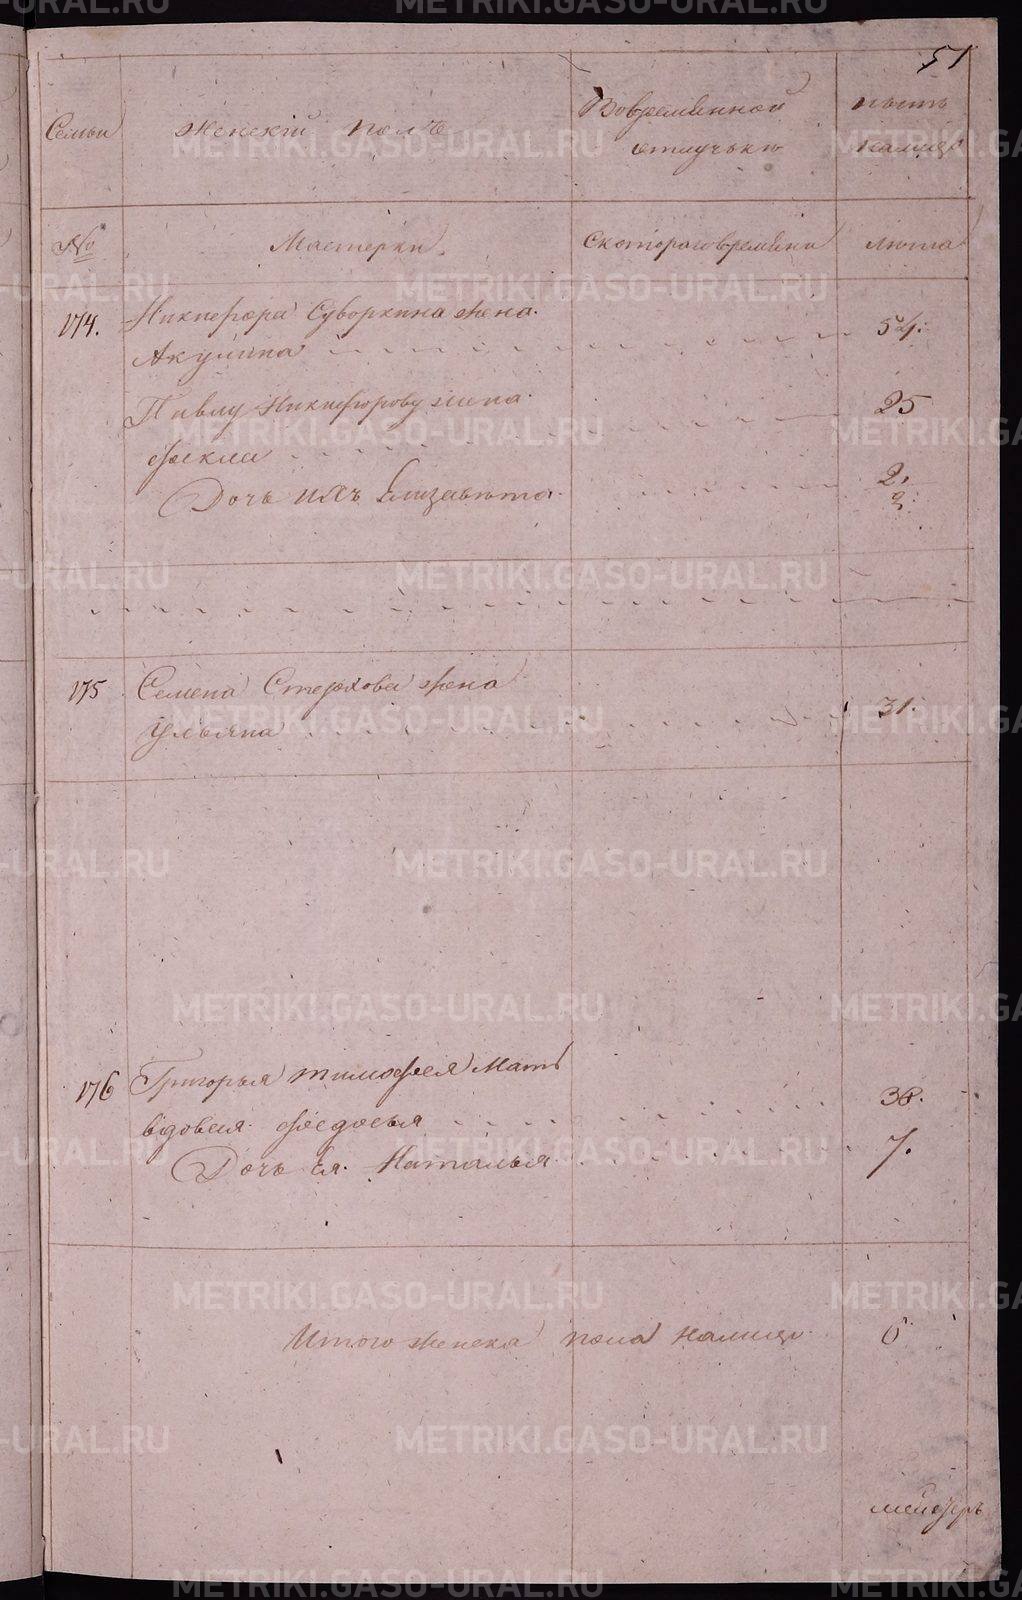 51
Семьи
женскiй полъ
Вовременной
отлучьки
нынъ
налицо
№
Мастерки
Скотораговремени
люта
174.
Никиѳора Суворкина жена
Акулина
54.
Павлу Никиѳорову жена
ѳекла
25
Дочь ихъ Елизавѣта
2.
175
Семена Стерхова жена
Ульяна
31.
176
Григорья тимоѳеея Мать
вдовая ѳедосья
38.
Дочь Ея Наталья
7.
Итого женска пола налицо
6
METRIKI.GASO-URAL.RU